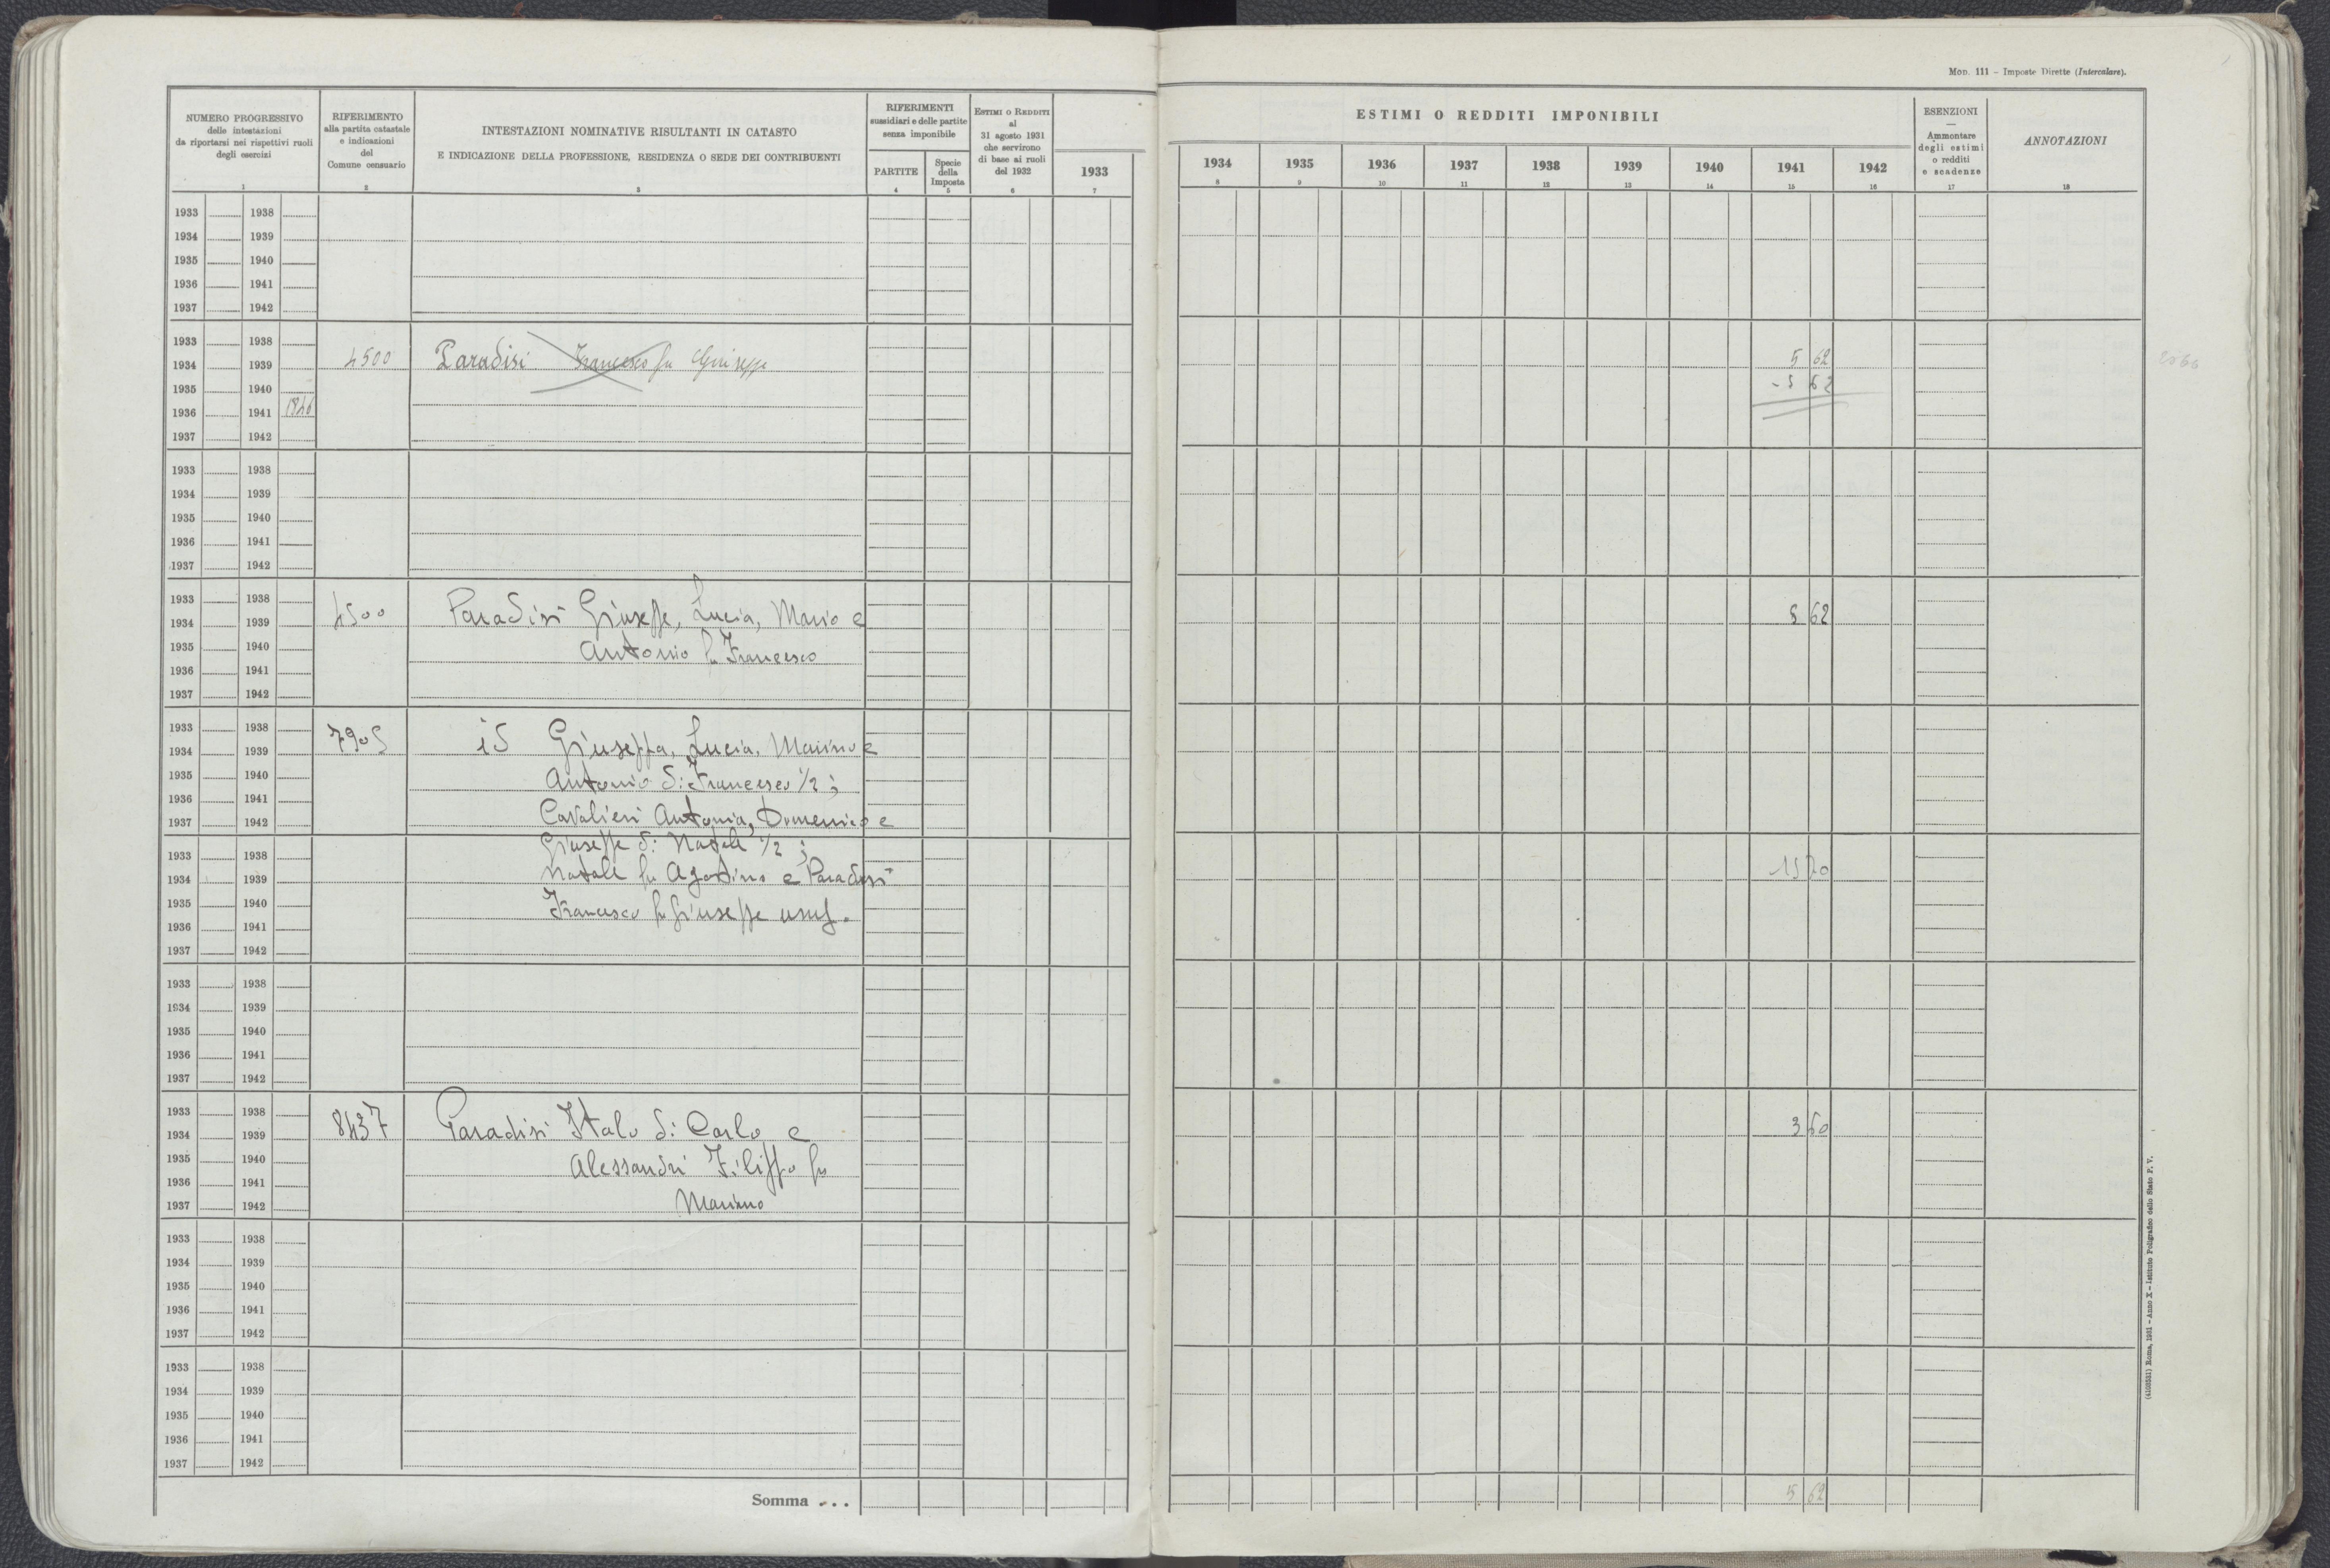 Mod. 111 – Imposte Dirette (Intercalare).
NUMERO PROGRESSIVO
delle intestazioni
da riportarsi nei rispettivi ruoli
degli esercizi
1
RIFERIMENTO
alla partita catastale
e indicazioni
del
Comune censuario
2
INTESTAZIONI NOMINATIVE RISULTANTI IN CATASTO
E INDICAZIONE DELLA PROFESSIONE, RESIDENZA O SEDE DEI CONTRIBUENTI
3
RIFERIMENTI
sussidiari e delle partite
senza imponibile
PARTITE
4
Specie
della
Imposta
5
Estimi o Redditi
al
31 agosto 1931
che servirono
di base ai ruoli
del 1932
6
ESTIMI O REDDITI IMPONIBILI
1933 1934 1935 1936 1937 1938 1939 1940 1941 1942
7 8 9 10 11 12 13 14 15 16
ESENZIONI
—
Ammontare
degli estimi
o redditi
e scadenze
17
ANNOTAZIONI
18
1933 1938
1934 1939
1935 1940
1936 1941
1937 1942
1933 1938
1934 1939 4500 Paradisi Francesco fu Giuseppe 5 62
1935 1940 - 5 62
1936 1941 1846
1937 1942
1933 1938
1934 1939
1935 1940
1936 1941
1937 1942
1933 1938
1934 1939 4500 Paradisi Giuseppe, Lucia, Mario e 5 62
1935 1940 Antonio fu Francesco
1936 1941
1937 1942
1933 1938
1934 1939 7905 id Giuseppa, Lucia, Marino e
1935 1940 Antonio di Francesco 1/2;
1936 1941
1937 1942 Cavalieri Antonia, Domenico e
Giuseppe di Natale 1/2;
1933 1938
1934 1939 Natale fu Agostino e Paradisi 15 70
1935 1940 Francesco fu Giuseppe usuf.
1936 1941
1937 1942
1933 1938
1934 1939
1935 1940
1936 1941
1937 1942
1933 1938
1934 1939 8437 Paradisi Italo di Carlo e 3 60
1935 1940 Alessandri Filippo fu
1936 1941
1937 1942 Marino
1933 1938
1934 1939
1935 1940
1936 1941
1937 1942
1933 1938
1934 1939
1935 1940
1936 1941
1937 1942
Somma . . . 5 62
(4108531) Roma, 1931 – Anno X – Istituto Poligrafico dello Stato P. V.